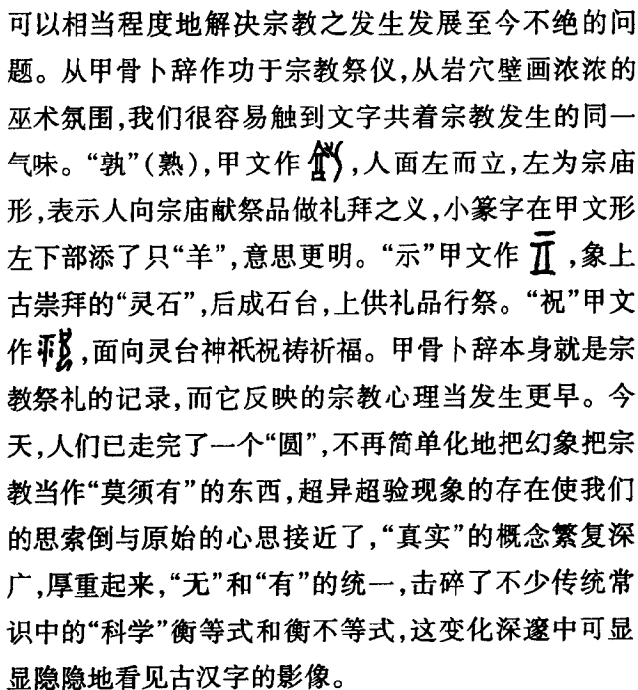 可以相当程度地解决宗教之发生发展至今不绝的问
题。从甲骨卜辞作功于宗教祭仪,从岩穴壁画浓浓的
巫术氛围,我们很容易触到文字共着宗教发生的同一
气味。“孰”(熟),甲文作,人面左而立,左为宗庙
形,表示人向宗庙献祭品做礼拜之义,小篆字在甲文形
左下部添了只“羊”,意思更明。“示”甲文作,象上
古崇拜的“灵石”,后成石台,上供礼品行祭。“祝”甲文
作,面向灵台神祇祝祷祈福。甲骨卜辞本身就是宗
教祭礼的记录,而它反映的宗教心理当发生更早。今
天,人们已走完了一个“圆”,不再简单化地把幻象把宗
教当作“莫须有”的东西,超异超验现象的存在使我们
的思索倒与原始的心思接近了,“真实”的概念繁复深
广,厚重起来,“无”和“有”的统一,击碎了不少传统常
识中的“科学”衡等式和衡不等式,这变化深邃中可显
显隐隐地看见古汉字的影像。